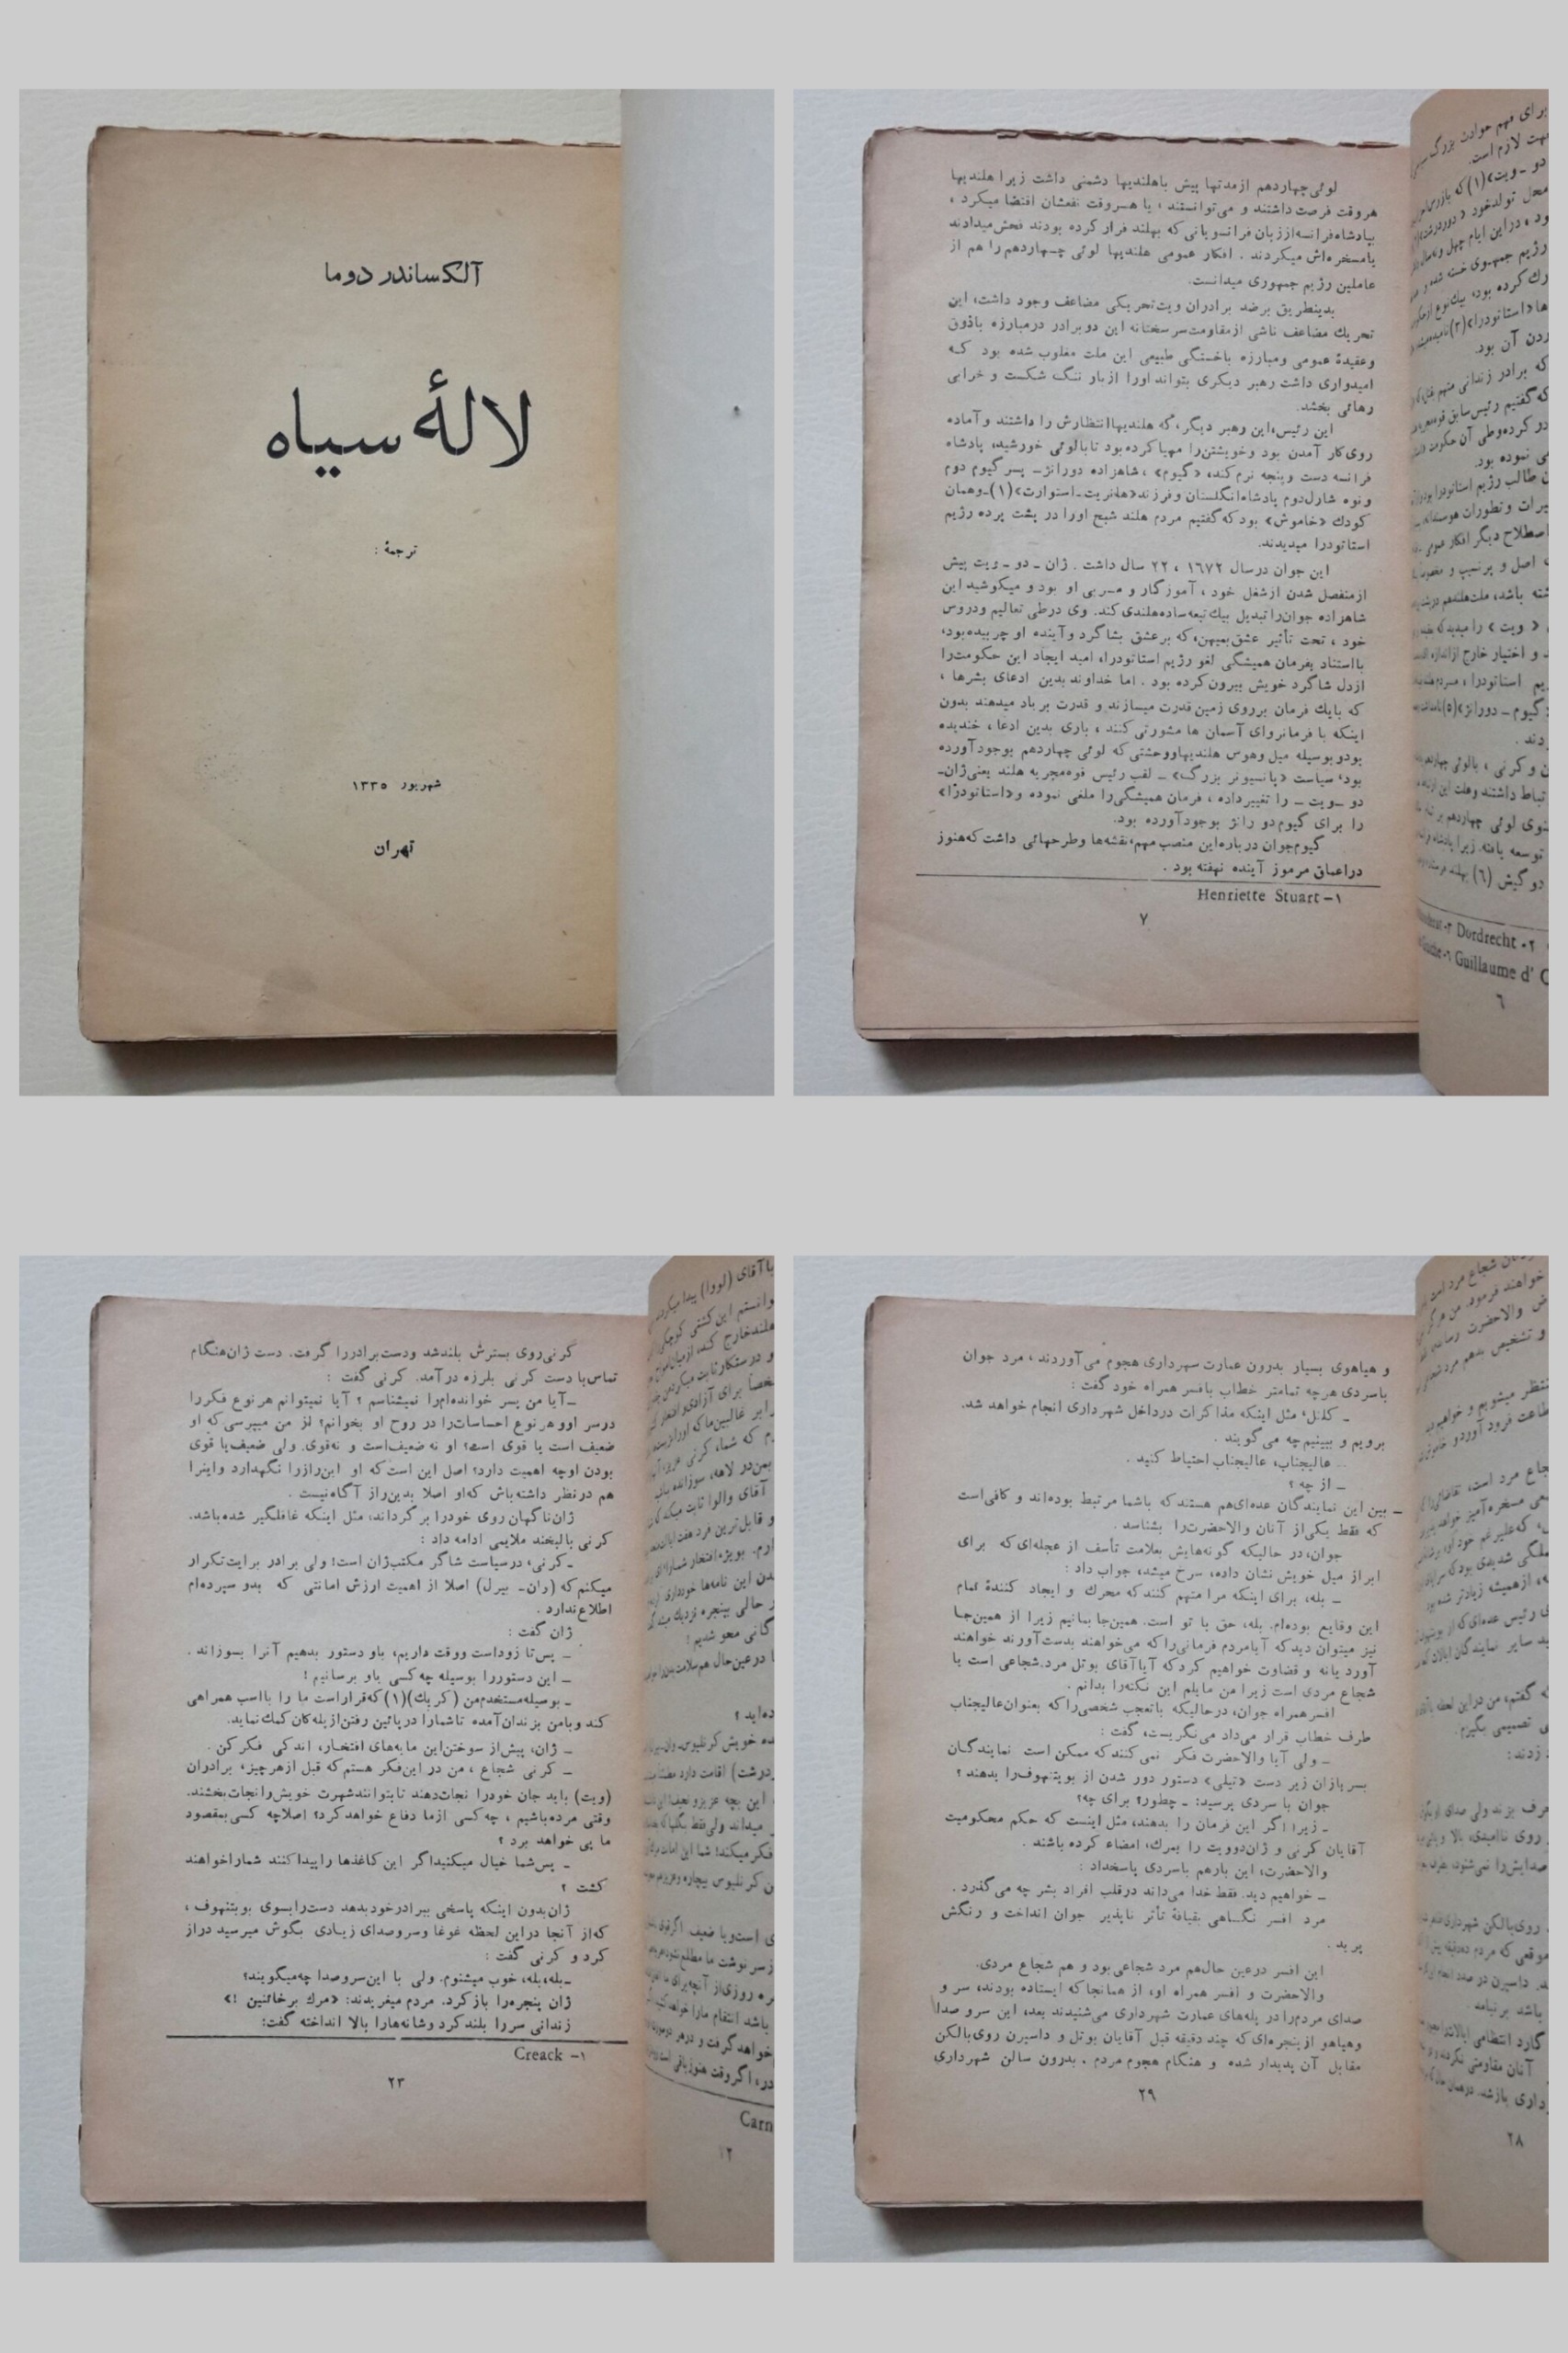 آلکساندر دوما
لالهٔ سیاه
ترجمهٔ :
شهریور ۱۳۳۵
تهران
لوئی چهاردهم ازمدتها پیش باهلندیها دشمنی داشت زیرا هلندیها
هروقت فرصت داشتند و می‌توانستند ، یا هـروقت نفعشان اقتضا میکرد ،
بپادشاه فرانسه از زبان فرانسویانی که بهلند فرار کرده بودند فحش میدادند
یامسخره‌اش میکردند . افکار عمومی هلندیها لوئی چـهاردهم را هم از
عاملین رژیم جمهوری میدانست.
بدینطریق برضد برادران ویت‌تحریکی مضاعف وجود داشت، این
تحریك مضاعف ناشی ازمقاومت سرسختانه این دوبرادر درمبارزه باذوق
وعقیدهٔ عمومی ومبارزه باخستگی طبیعی این ملت مغلوب شده بود کـه
امیدواری داشت رهبر دیگری بتواند اورا ازبار ننگ شکست و خرابی
رهائی بخشد.
این رئیس،این رهبر دیگر،که هلندیهاانتظارش را داشتند وآماده
روی‌کار آمدن بود وخویشتن‌را مهیاکرده بود تابالوئی خورشید، پادشاه
فرانسه دست وپنجه نرم کند، «گیوم» ،شاهزاده دورانژ- پسر گیوم دوم
ونوه شارل‌دوم پادشاه‌انگلستان وفرزند«هانریت-استوارت»(۱)-وهمان
کودك «خاموش» بود که گفتیم مردم هلند شبح اورا در پشت پرده رژیم
استاتودرا میدیدند.
این جوان درسال ۱۶۷۲ ، ۲۲ سال داشت . ژان - دو - ویت پیش
ازمنفصل شدن ازشغل خود ، آموزگار و مـربی او بود و میکوشید این
شاهزاده جوان‌را تبدیل بیك تبعه ساده هلندی کند. وی درطی تعالیم ودروس
خود ، تحت تأثیر عشق بمیهن،که برعشق بشاگرد وآینده او چربیده بود،
بااستناد بفرمان همیشگی لغو رژیم استاتودرا، امید ایجاد این حکومت‌را
ازدل شاگرد خویش بیرون کرده بود . اما خداوند بدین ادعای بشرها ،
که بایك فرمان برروی زمین قدرت میسازند و قدرت برباد میدهند بدون
اینکه با فرمانروای آسمان ها مشورتی کنند ، باری بدین ادعا ، خندیده
بودو بوسیله میل وهوس هلندیهاووحشتی که لوئی چهاردهم بوجودآورده
بود، سیاست «پانسیونر بزرگ» - لقب رئیس قوه مجریه هلند یعنی ژان-
دو -ویت - را تغییرداده ، فرمان همیشگی را ملغی نموده و«استاتودرا»
را برای گیوم‌دو رانژ بوجودآورده بود.
گیوم‌جوان درباره این منصب مهم،نقشه‌ها وطرحهائی داشت که هنوز
دراعماق مرموز آینده نهفته بود .
۱- Henriette Stuart
۷
Dordrecht -۲
Guillaume d'
٦
کرنی روی بسترش بلندشد ودست برادررا گرفت. دست ژان هنگام
تماس با دست کرنی بلرزه درآمد. کرنی گفت :
-آیا من پسر خوانده‌ام‌را نمیشناسم ؟ آیا نمیتوانم هرنوع فکررا
درسر اووهرنوع احساسات‌را در روح او بخوانم؟ از من میپرسی که او
ضعیف است یا قوی است؟ او نه ضعیف است و نه قوی. ولی ضعیف یا قوی
بودن اوچه اهمیت دارد؟ اصل این است که او این‌رازرا نگهدارد واینرا
هم درنظر داشته باش که‌او اصلا بدین راز آگاه نیست .
ژان ناگهان روی خودرا برگرداند، مثل اینکه غافلگیر شده باشد.
کرنی بالبخند ملایمی ادامه داد :
-کرنی، درسیاست شاگر مکتب‌ژان است! ولی برادر برایت تکرار
میکنم که (وان- بیرل) اصلا از اهمیت ارزش امانتی که بدو سپرده‌ام
اطلاع ندارد .
ژان گفت :
- پس تا زوداست ووقت داریم، باو دستور بدهیم آنرا بسوزاند .
- این دستوررا بوسیله چه کسی باو برسانیم !
- بوسیله مستخدم من (کریك)(۱)که قراراست ما را بااسب همراهی
کند وبامن بزندان آمده تاشمارا درپائین رفتن ازپله کان کمك نماید.
- ژان، پیش از سوختن این مایه‌های افتخـار، اندکی فکر کن .
- کرنی شجاع ، من در این‌فکر هستم که قبل ازهرچیز، برادران
(ویت) باید جان خودرا نجات دهند تابتوانندشهرت خویش‌رانجات بخشند.
وقتی مرده باشیم ، چه کسی ازما دفاع خواهدکرد؟ اصلاچه کسی بمقصود
ما پی خواهد برد ؟
- پس شما خیال میکنیداگر این کاغذها راپیداکنند شماراخواهند
کشت ؟
ژان بدون اینکه پاسخی ببرادرخودبدهد دست‌رابسوی بویتنهوف ،
که‌از آنجا دراین لحظه غوغا وسروصدای زیـادی بگوش میرسید دراز
کرد و کرنی گفت :
-بله،بله، خوب میشنوم. ولی با این سروصدا چه میگویند؟
ژان پنجره‌را بازکرد. مردم میغریدند: «مرك برخائنین !»
زندانی سررا بلندکرد وشانه‌هارا بالا انداخته گفت:
۱- Creack
۲۳
Carn
و هیاهوی بسیار بدرون عمارت سهرداری هجوم می‌آوردند ، مرد جوان
باسردی هرچه تمامتر خطاب بافسر همراه خود گفت :
- کلنل، مثل اینکه مذاکرات درداخل شهرداری انجام خواهد شد.
برویم و ببینیم چه می‌گویند .
- عالیجناب، عالیجناب احتیاط کنید .
- از چه ؟
- بین این نمایندگان عده‌ای‌هم هستند که باشما مرتبط بوده‌اند و کافی‌است
که فقط یکی از آنان والاحضرت‌را بشناسد .
جوان، در حالیکه گونه‌هایش بعلامت تأسف از عجله‌ای که برای
ابراز میل خویش نشان داده، سرخ میشد، جواب داد :
- بله، برای اینکه مرا متهم کنند که محرك و ایجاد کنندهٔ تمام
این وقایع بوده‌ام. بله، حق با تو است. همین‌جا بمانیم زیرا از همین‌جـا
نیز میتوان دید که آیامردم فرمانی‌راکه می‌خواهند بدست‌آورند خواهند
آورد یانه و قضاوت خواهیم کرد که آیاآقای بوتل مرد.شجاعی است یا
شجاع مردی است زیرا من مایلم این نکته‌را بدانم .
افسر همراه جوان، درحالیکه باتعجب شخصی‌راکه بعنوان‌عالیجناب
طرف خطاب قرار می‌داد می‌نگریست، گفت :
- ولی آیا والاحضرت فکر نمی‌کنندکه ممکن است نمایندگـان
بسربازان زیر دست «تیلی» دستور دور شدن از بویتنهوف‌را بدهند ؟
جوان با سردی پرسید: - چطور؟ برای چه؟
- زیرا اگر این فرمان را بدهند، مثل اینست که حکم محکومیت
آقایان کرنی و ژان‌دوویت را بمرك، امضاء کرده باشند .
والاحضرت، این بارهم باسردی پاسخداد :
- خواهیم دید. فقط خدا می‌داند درقلب افراد بشر چه می‌گذرد .
مرد افسر نگـاهی بقیافهٔ تأثر ناپذیر جوان انداخت و رنگش
پرید .
این افسر درعین حال‌هم مرد شجاعی بود و هم شجاع مردی.
والاحضرت و افسر همراه او، از همانجا که ایستاده بودند، سر و
صدای مردم‌را در پله‌های عمارت شهرداری می‌شنیدند بعد، این سرو صدا
وهیاهو ازپنجره‌ای که چند دقیقه قبل آقایان بوتل و داسپرن روی‌بالکن
مقابل آن پدیدار شده و هنگام هجوم مردم . بدرون سالن شهرداری
۲۹
۲۸